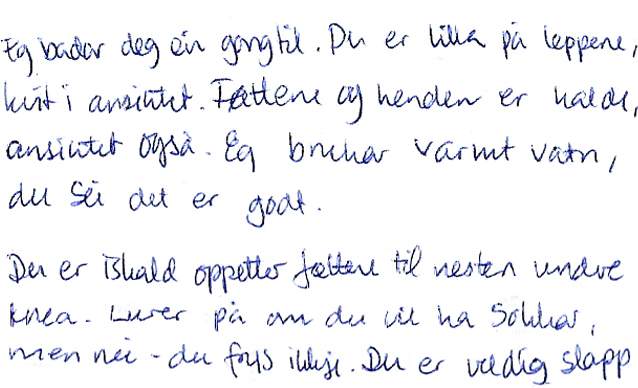 Eg badar deg ein gong til. Du er lilla på leppene,
kvit i ansiktet. Føttene og henden er kalde,
ansiktet også. Eg brukar varmt vatn,
du sei det er godt.
Du er iskald oppetter føttene til nesten undre
knea. Lurer på om du vil ha sokkar,
men nei - du frys ikkje. Du er veldig slapp